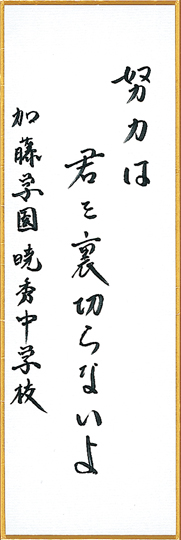 努力は
君を裏切らないよ
加藤学園暁秀中学校